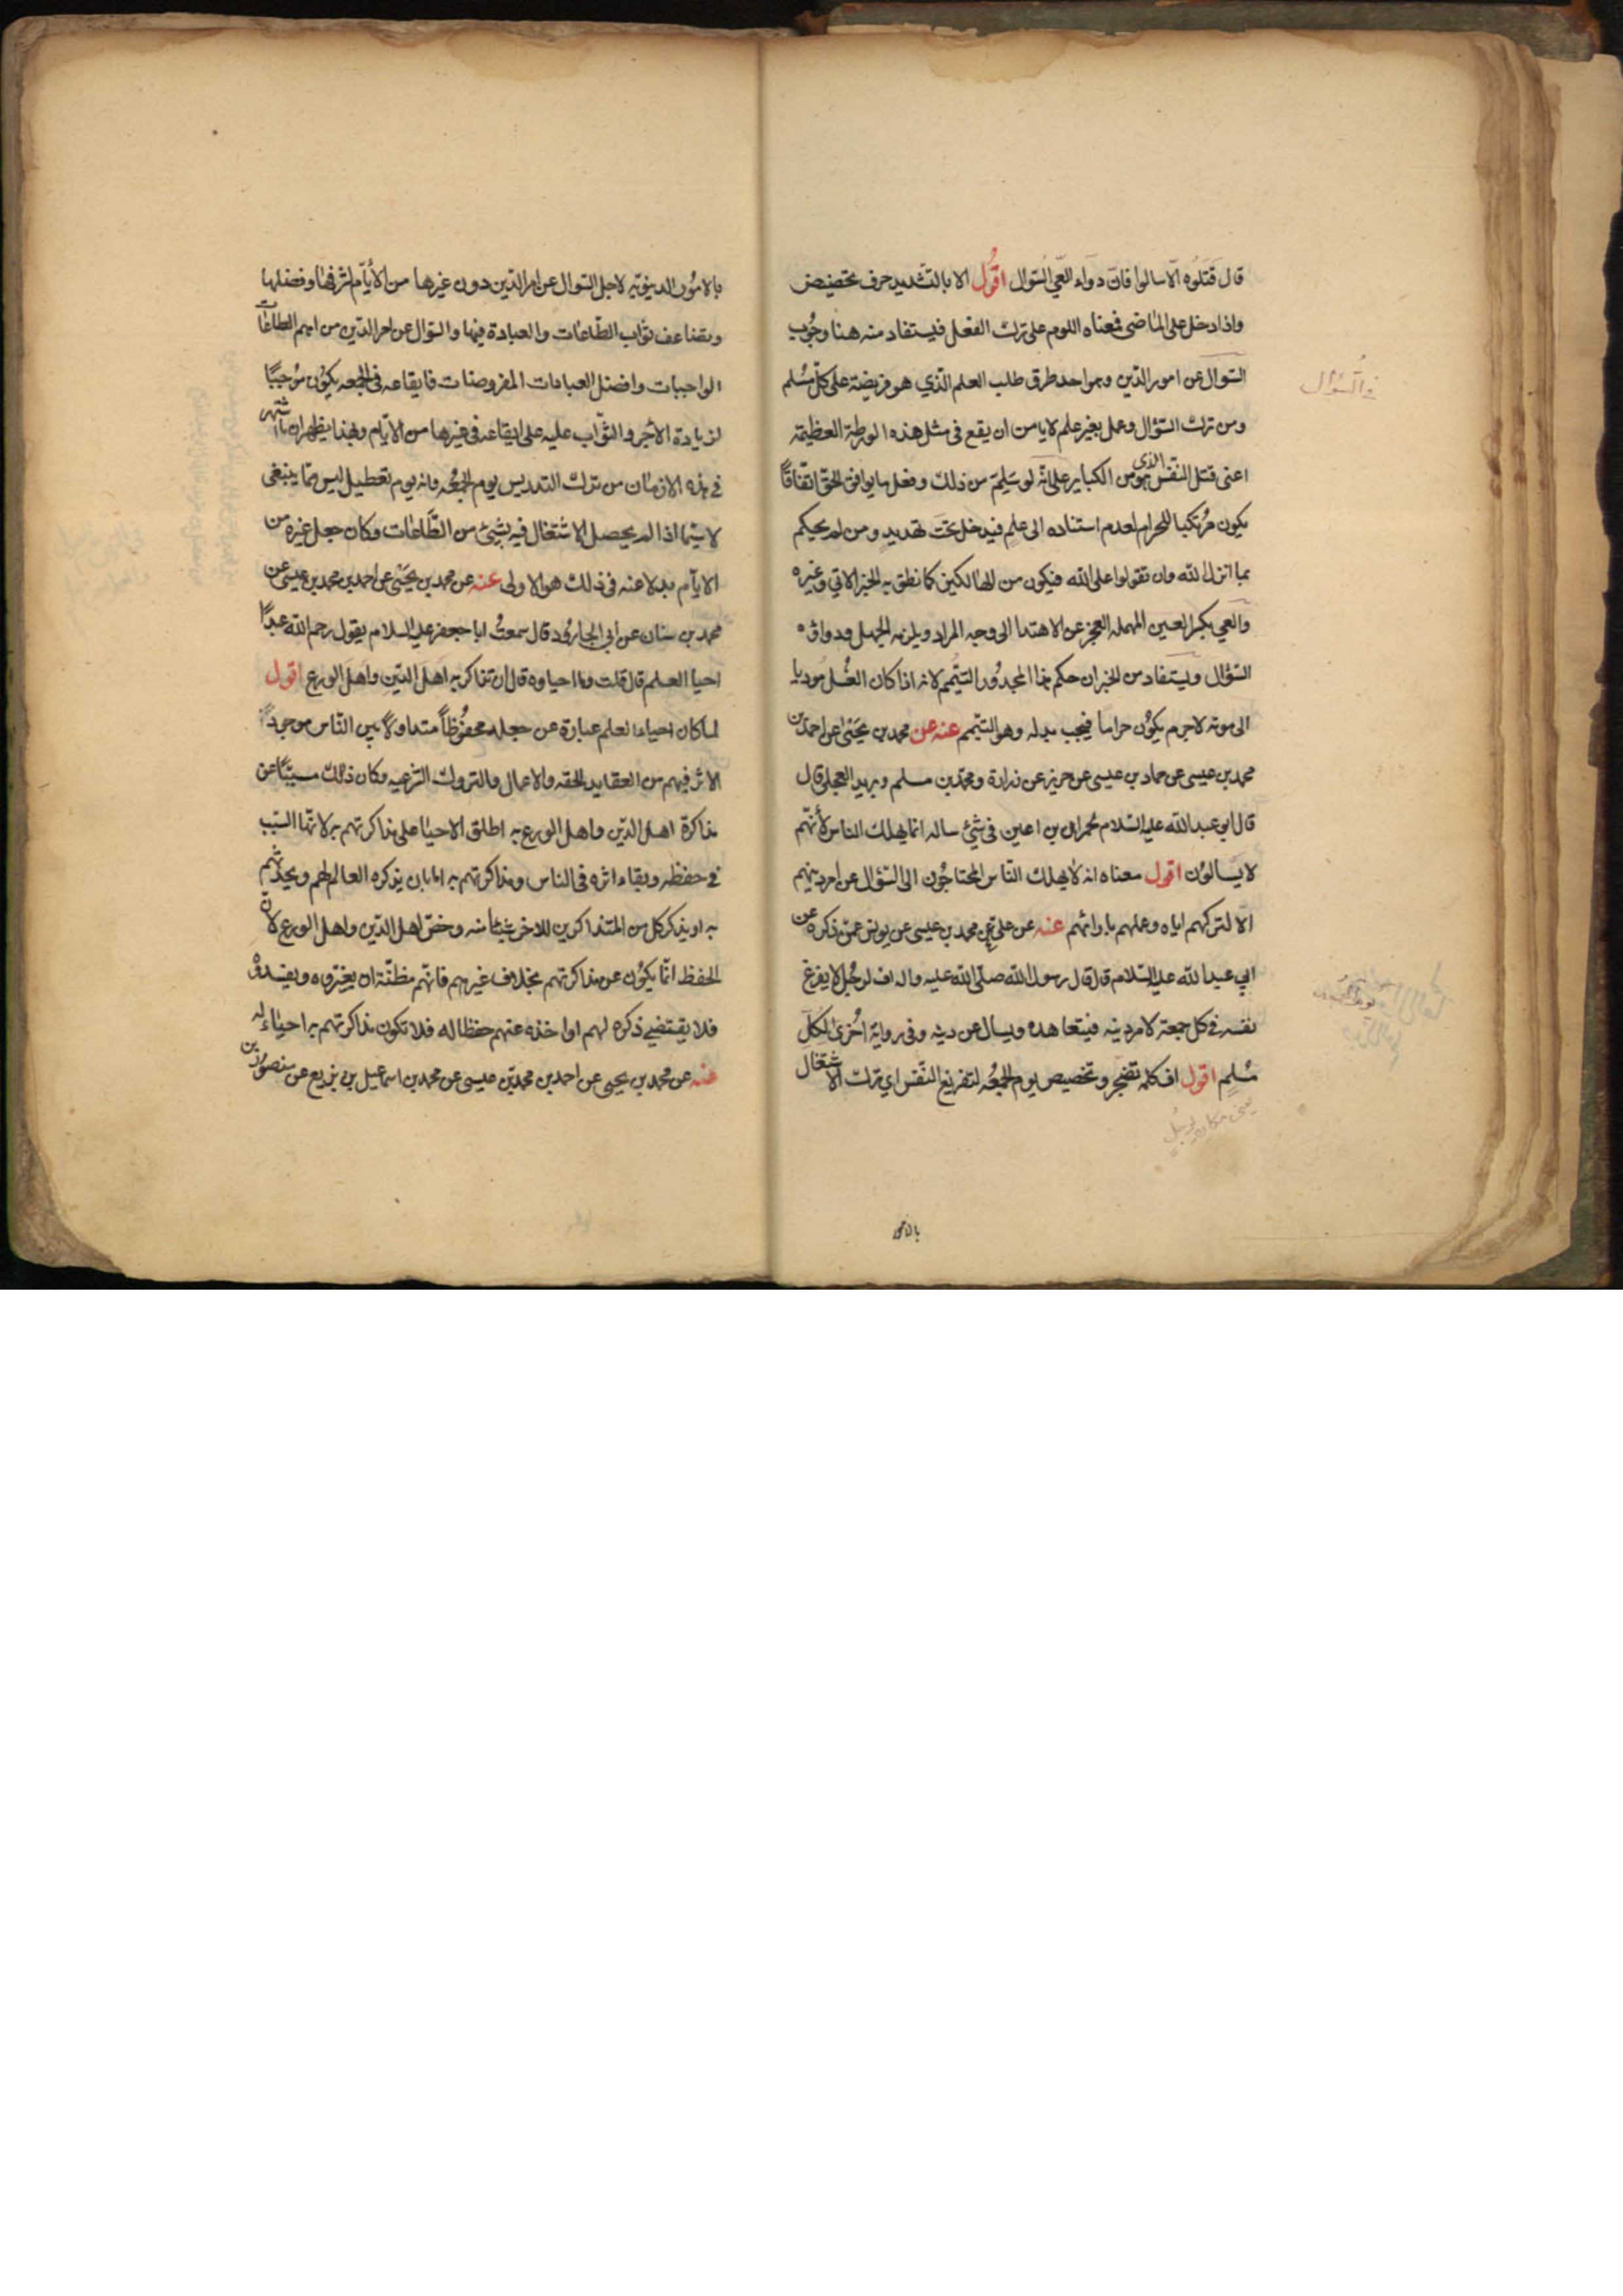 قال قتلوه الّا سالوا فانّ دواء العَي السّوال اقول الا بالتّشديد حرف تحضيض
واذا دخل على الماضى فمعناه اللوم على ترك الفعل فيستفاد منه هنا وجُوب
السّوال عن امور الدّين وهو احد طرق طلب العلم الّذي هو فريضة على كلّ مسُلم
ومن ترك السّؤال وعمل بغير علم لا يامن ان يقع فى مثل هذه الورطة العظيمة
اعنى قتل النّفس الذى هو من الكباير على انّه لو سَلِمَ من ذلك وفعل ما يوافق الحقّ اتّفاقًا
يكون مُرتكبا للحرام لعدم استناده الى علمٍ فيدخل تحتَ تهديدِ ومن لم يحكم
بما انزل الله وان تقولوا على الله فيكون من الهالكين كما نطق به الخبر الاتي وغيره
والعي بكسر العين المهمله العجز عن الاهتدا الى وجه المراد ويلزمه الجهل ودواؤه
السّؤال ويستفاد من الخبر ان حكم هذا المجدُور التيّمم لانه اذا كان الغُسل مُوديا
الى موته لاجرم يكوُن حراماً فيجب بدله وهو التيّمم عنه عن محمد بن يحَيىٰ عن احمد بن
محمد بن عيسى عن حماد بن عيسى عن حريز عن زرارة ومحمّد بن مسلم وبريد العجلى قال
قال ابو عبد الله عليه السّلام لحمران بن اعين فى شيْ ساله انما يهلك الناس لأنّهم
لا يَسالوُن اقول معناه انه لا يهلك النّاس المحتاجُون الى السّؤال عن امر دينهم
الّا لتركهم اياه وعملهم بارائهم عنه عن علىّ عن محمد بن عيسى عن يونس عمّن ذكره عن
ابي عبد الله عليه السّلام قال قال رسول الله صلّى الله عليه واله اف لرجُل لا يفرغ
نفسه فى كل جمعة لامر دينه فيتعاهده ويسال عن دينه وفى رواية اخُرىٰ لكلّ
مُسْلِمٍ اقول اف كلمه تضجّر وتخصيص يوم الجمعُه لتفريغ النّفس اى ترك الاشتغال
يعنى مكان لرجُل
فى السّؤال
بالامور
بالامُور الدنيويّه لاجل السّوال عن امر الدّين دون غيرها من الأيّام لشرفها وفضلها
وتضاعف ثواب الطّاعات والعبادة فيها والسّوال عن امر الدّين من اهم الطاعات
الواجبات وافضل العبادات المفروضات فايقاعه فى الجمعه يكوُن مُوجبًا
لزيادة الأجر والثّواب عليه على ايقاعه فى غيرها من الايّام وبهذا يظهر ان ما اشتهر
فى هذه الازمان من ترك التدريس يوم الجمعُه وانه يوم تعطيل ليس ممّا ينبغى
لا سيّما اذا لم يحصل الاشتغال فيه بشيْ من الطّاعات وكان جعل غيره من
الايّام بدلا عنه فى ذلك هو الاولى عنه عن محمد بن يحَيىٰ عن احمد بن محمد بن عيسى عن
محمد بن سنان عن ابي الجارُود قال سمعتُ ابا جعفر عليه السلام يقول رحم الله عبدًا
احيا العلم قال قلت وما احياوه قال ان تذاكر به اهلَ الدّين واهلَ الورع اقول
لما كان احياء العلم عبارة عن جعله محفوُظاً متداولاً بين النّاس موجودًا
الاثر فيهم من العقايد الحقه والاعمال والتروك الشرعيه وكان ذلك مسبّبًا عن
مذاكرة اهل الدّين واهل الورع به اطلق الاحيا على مذاكرتهم به لانّها السّبب
فى حفظه وبقاء اثره فى الناس ومذاكرتهم به امّا بان يذكره العالم لهم ويحدّثهم
به او يذكر كل من المتذاكرين للاخر شيئا منه وخصّ اهل الدّين واهل الورع لانّ
الحفظ انّما يكوُن عن مذاكرتهم بخلاف غيرهم فانّهم مظنّة ان يغيّروه ويفسدوه
فلا يقتضي ذكره لهم او اخذه عنهم حفظا له فلا تكون مذاكرتهم به احيٰاء له
عنه عن محمد بن يحيى عن احمد بن محمد بن عيسى عن محمد بن اسماعيل بن بزيع عن منصور بن